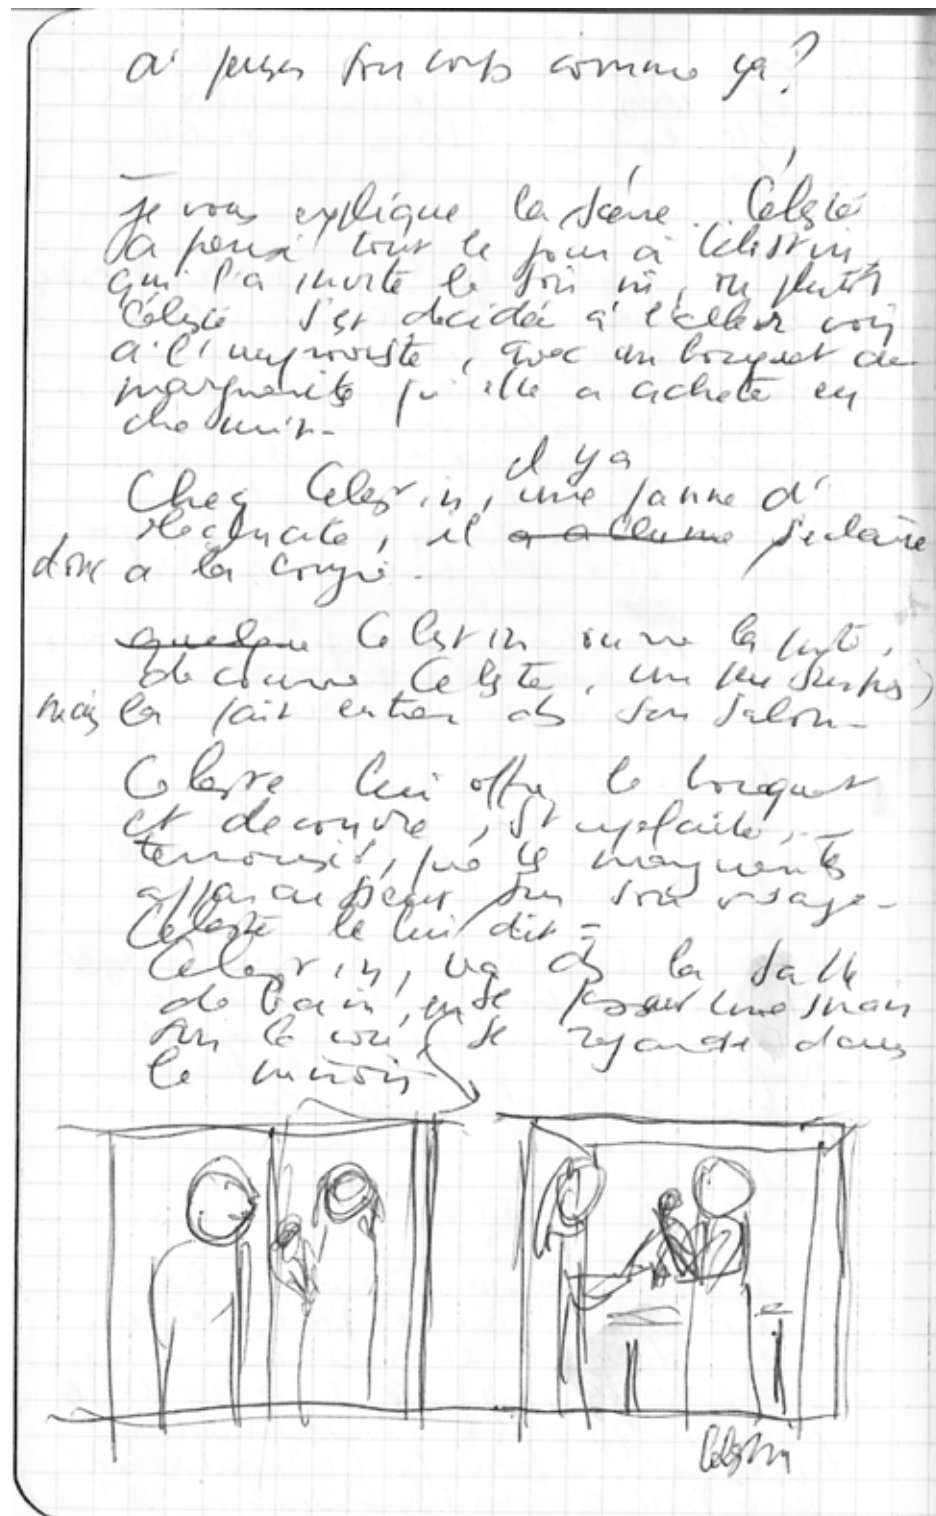 à penser son corps comme ça ?
Je vous explique la scène. Céleste
a pensé tout le jour à Célestin
qui l'a invité le soir, ou plutôt
Céleste s'est décidée à l'aller voir
à l'improviste, avec un bouquet de
marguerites qu'elle a acheté en
chemin.
il y a
Chez Célestin, une panne d'
électricité, il s'éclaire
donc à la bougie.
Célestin ouvre la porte,
découvre Céleste, un peu surpris,
mais la fait entrer ds son salon.
Céleste lui offre le bouquet
et découvre, stupéfaite,
terrorisée, que les marguerites
apparaissent sur son visage.
Céleste le lui dit =
Célestin, va ds la salle
de bain, en se passant une main
sur le cou, se regarde dans
le miroir
Célestin